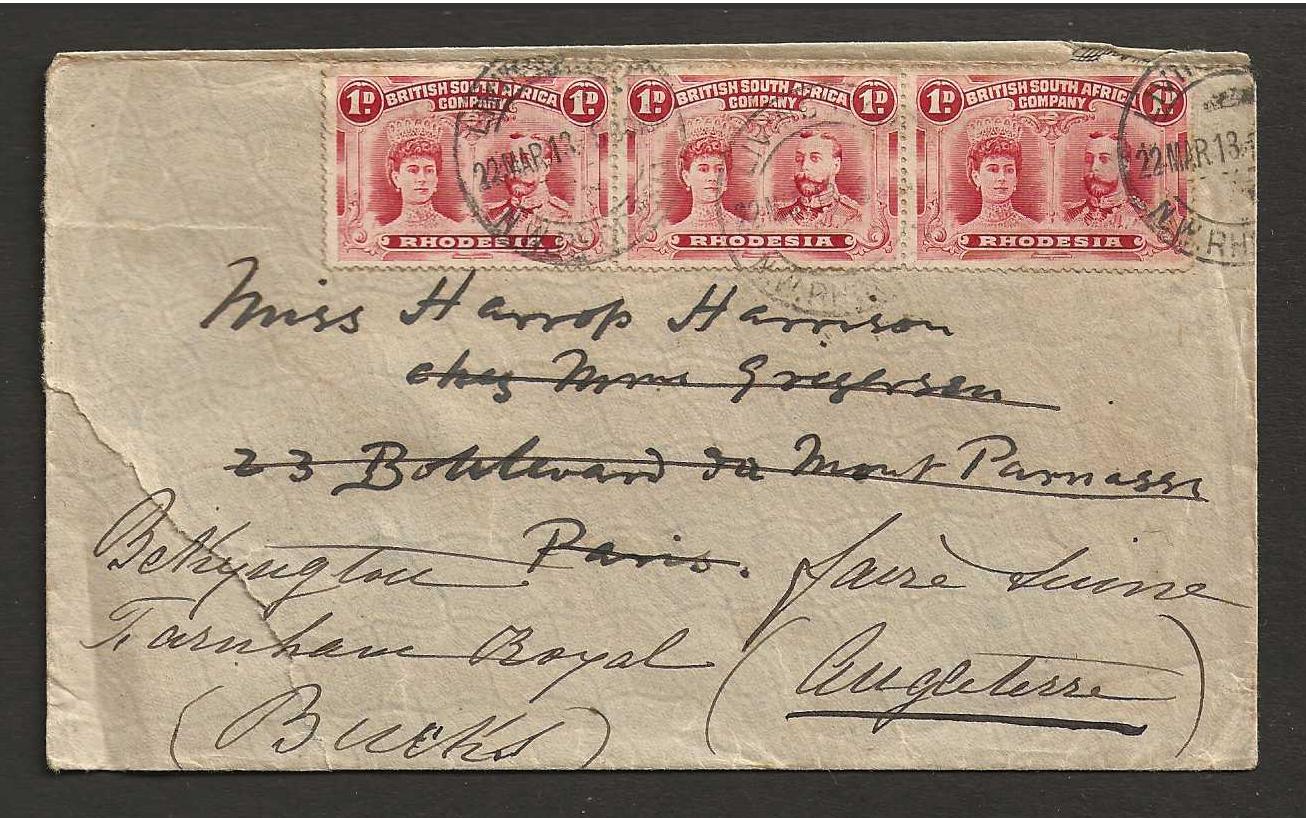 1D BRITISH SOUTH AFRICA COMPANY 1D
RHODESIA
1D BRITISH SOUTH AFRICA COMPANY 1D
RHODESIA
1D BRITISH SOUTH AFRICA COMPANY 1D
RHODESIA
22 MAR 13
N.W.RH
22 MAR 13
N.W.RH
Miss Harrop Harrison
chez Mme Gregersen
23 Boulevard du Mont Parnasse
Paris.
faire suivre
Farnham Royal
(Bucks)
(Angleterre)